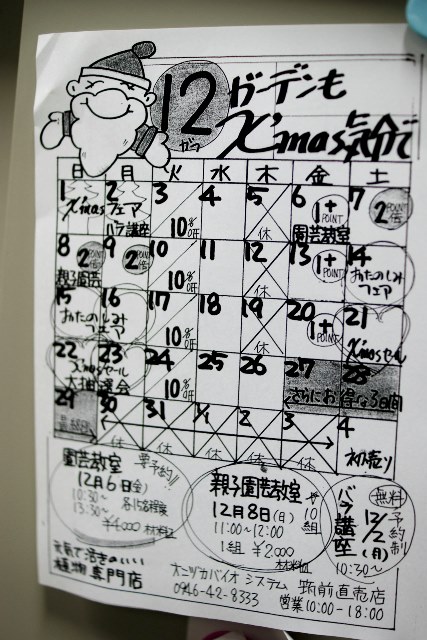 12
ガラ
ガーデンも
X'mas気分で
日 月 火 水 木 金 土
1 2 3 4 5 6 7
X'mas フェア
バラ講座
10%OFF
休
1+ POINT
園芸教室
2 POINT倍
8 9 10 11 12 13 14
2 POINT倍
親子園芸
2 POINT倍
10%OFF
休
1+ POINT
おたのしみ
フェア
15 16 17 18 19 20 21
おたのしみ
フェア
10%OFF
休
1+ POINT
X'masセール
22 23 24 25 26 27 28
X'masセール
大抽選会
10%OFF
さらにお得な3日間
29 30 31 1/1 2 3 4
最終日
休 休 休 休 休
初売り
園芸教室 要予約!!
12月6日(金)
10:30~
13:30~
各15名程度
¥4000 材料込
親子園芸教室
12月8日(日)
11:00~12:00
1組 ¥2,000
材料込
10組
バラ講座
無料
予約制
12/2(月)
10:30~
元気で活きのいい
植物専門店
オニヅカバイオシステム 筑前直売店
0946-42-8333 営業10:00-18:00